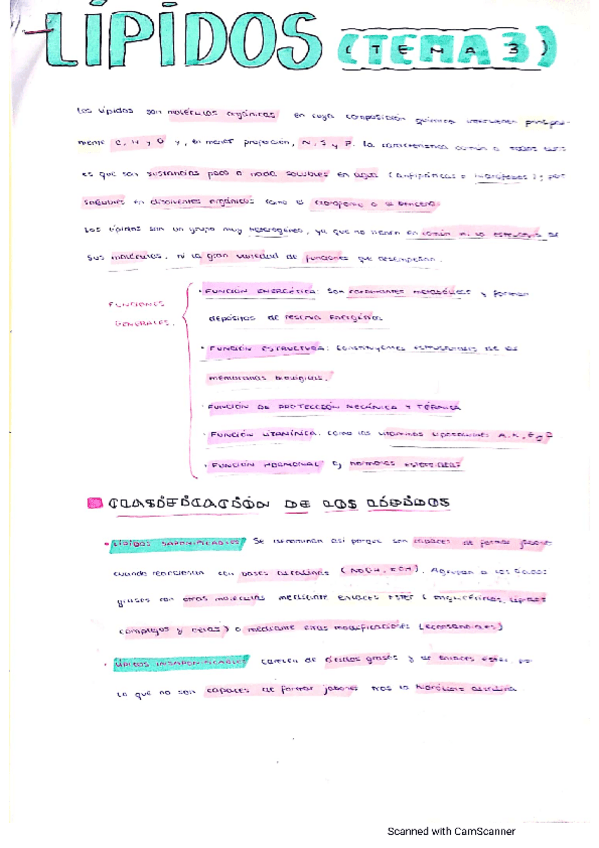 LÍPIDOS (TEMA 3)
Los lípidos son moléculas orgánicas en cuya composición química intervienen principal-
mente C, H y O y, en menor proporción, N, S y P. La característica común a todos ellos
es que son sustancias poco o nada solubles en agua ( o ) y
solubles en disolventes orgánicos como el cloroformo o el benceno.
Los lípidos son un grupo muy heterogéneo, ya que no tienen en común ni la estructura de
sus moléculas, ni la gran variedad de funciones que desempeñan.
FUNCIONES
GENERALES.
• FUNCIÓN ENERGÉTICA: son y forman
depósitos de reserva energética.
• FUNCIÓN ESTRUCTURAL: constituyentes estructurales de las
membranas biológicas.
• FUNCIÓN DE PROTECCIÓN MECÁNICA Y TÉRMICA
• FUNCIÓN VITAMÍNICA: como las vitaminas liposolubles: A, K, E y D
• FUNCIÓN HORMONAL Ej hormonas esteroideas
CLASIFICACIÓN DE LOS LÍPIDOS
• LÍPIDOS SAPONIFICABLES Se denominan así porque son capaces de formar jabones
cuando reaccionan con bases (NaOH, KOH). Agrupan a los ácidos
grasos con otras moléculas mediante enlaces éster ( , lípidos
complejos y ceras) o mediante otras modificaciones (eicosanoides)
• LÍPIDOS INSAPONIFICABLES carecen de ácidos grasos y de enlaces éster, por
lo que no son capaces de formar jabones tras la hidrólisis alcalina.
Scanned with CamScanner